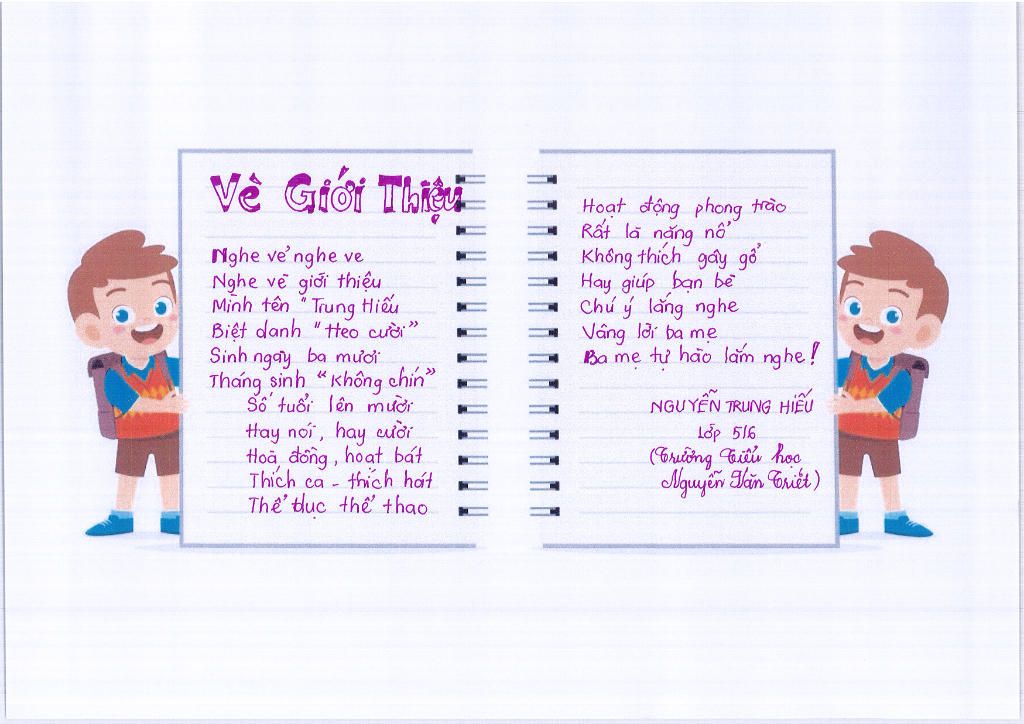 Vè Giới Thiệu
Nghe vẻ nghe ve
Nghe vè giới thiệu
Mình tên "Trung Hiếu
Biệt danh "Heo cười"
Sinh ngày ba mươi
Tháng sinh "Không chín"
Số tuổi lên mười
Hay nói, hay cười
Hoà đồng, hoạt bát
Thích ca - thích hát
Thể dục thể thao
Hoạt động phong trào
Rất là năng nổ
Không thích gây gổ
Hay giúp bạn bè
Chú ý lắng nghe
Vâng lời ba mẹ
Ba mẹ tự hào lắm nghe!
NGUYỄN TRUNG HIẾU
Lớp 5/6
(Trường Tiểu học
Nguyễn Văn Triết)